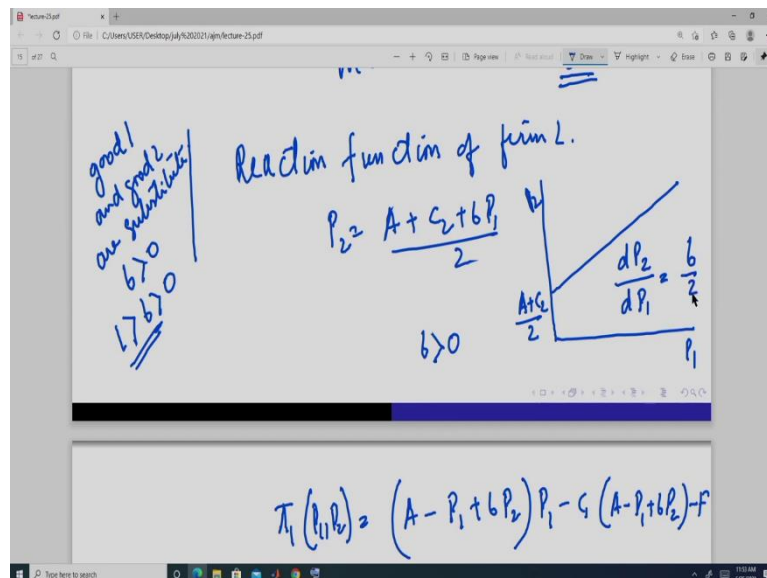 lecture-25.pdf
File | C:/Users/USER/Desktop/july%202021/ajm/lecture-25.pdf
15 of 27
Page view
Read aloud
Draw
Highlight
Erase
good 1
and good 2
are substitute
b>0
1>b>0
Reaction function of firm 2.
P₂ = A + C₂ + bP₁ / 2
P₂
A+C₂ / 2
dP₂ / dP₁ = b / 2
P₁
b>0
π₁(P₁,P₂) = (A - P₁ + bP₂)P₁ - C₁(A-P₁+bP₂)-F
Type here to search
11:53 AM